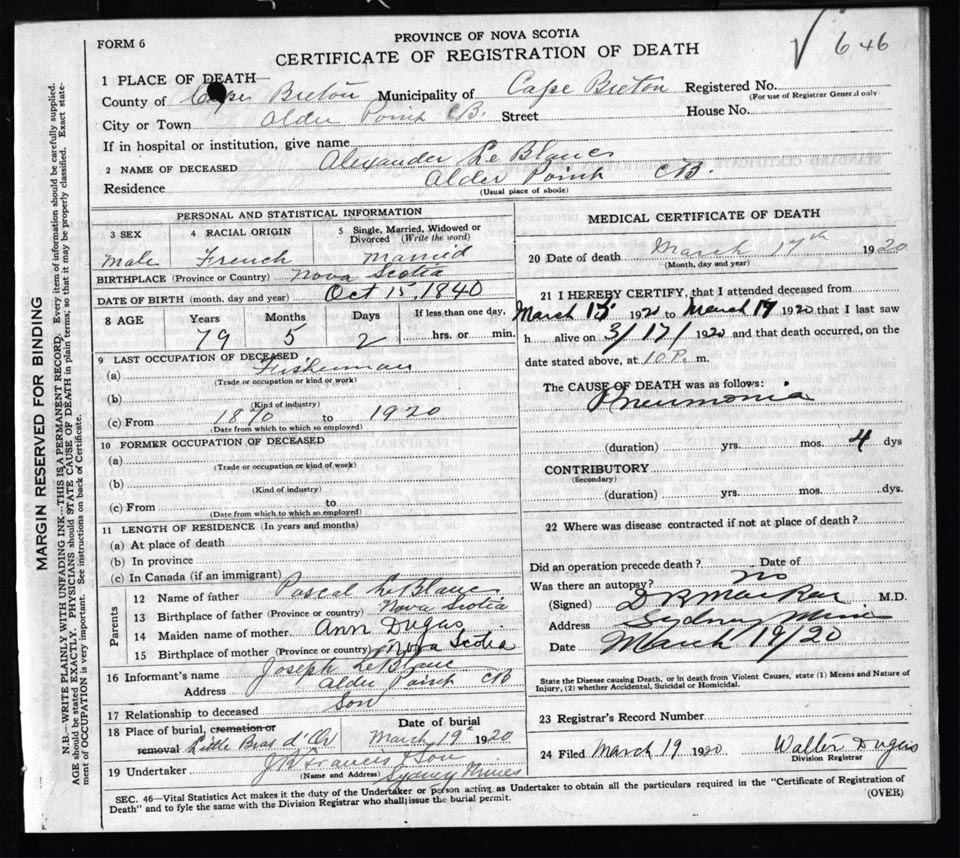 FORM 6
PROVINCE OF NOVA SCOTIA
CERTIFICATE OF REGISTRATION OF DEATH
√ 646
1 PLACE OF DEATH—
County of Cape Breton Municipality of Cape Breton Registered No.
(For use of Registrar General only)
City or Town Alder Point CB. Street House No.
If in hospital or institution, give name
2 NAME OF DECEASED Alexander Le Blanc
Residence Alder Point CB.
(Usual place of abode)
PERSONAL AND STATISTICAL INFORMATION
3 SEX 4 RACIAL ORIGIN 5 Single, Married, Widowed or Divorced (Write the word)
Male French Married
BIRTHPLACE (Province or Country) Nova Scotia
DATE OF BIRTH (month, day and year) Oct 15, 1840
8 AGE Years Months Days If less than one day,
79 5 2 hrs. or min.
9 LAST OCCUPATION OF DECEASED
(a) Fisherman
(Trade or occupation or kind or work)
(b)
(Kind of industry)
(c) From 1870 to 1920
(Date from which to which so employed)
10 FORMER OCCUPATION OF DECEASED
(a)
(Trade or occupation or kind of work)
(b)
(Kind of industry)
(c) From to
(Date from which to which so employed)
11 LENGTH OF RESIDENCE (In years and months)
(a) At place of death
(b) In province
(c) In Canada (if an immigrant)
Parents
12 Name of father Pascal LeBlanc
13 Birthplace of father (Province or country) Nova Scotia
14 Maiden name of mother Ann Dugas
15 Birthplace of mother (Province or country) Nova Scotia
16 Informant's name Joseph LeBlanc
Address Alder Point CB
17 Relationship to deceased Son
18 Place of burial, cremation or removal Little Bras d'Or
Date of burial March 19 1920
19 Undertaker Francis & Son
(Name and Address) Sydney Mines
MEDICAL CERTIFICATE OF DEATH
20 Date of death March 17th 1920
(Month, day and year)
21 I HEREBY CERTIFY, that I attended deceased from
March 15 1920 to March 17 1920 that I last saw
h alive on 3/17/1920 and that death occurred, on the
date stated above, at 10 P. m.
The CAUSE OF DEATH was as follows:
Pneumonia
(duration) yrs. mos. 4 dys
CONTRIBUTORY
(Secondary)
(duration) yrs. mos. dys.
22 Where was disease contracted if not at place of death?
Did an operation precede death? Date of
Was there an autopsy? no
(Signed) M.D.
Address Sydney Mines
Date March 19/20
State the Disease causing Death, or in death from Violent Causes, state (1) Means and Nature of
Injury, (2) whether Accidental, Suicidal or Homicidal.
23 Registrar's Record Number
24 Filed March 19 1920 Walter Dugas
Division Registrar
SEC. 46—Vital Statistics Act makes it the duty of the Undertaker or person acting as Undertaker to obtain all the particulars required in the "Certificate of Registration of
Death" and to fyle the same with the Division Registrar who shall issue the burial permit.
(OVER)
MARGIN RESERVED FOR BINDING
N.B.—WRITE PLAINLY WITH UNFADING INK—THIS IS A PERMANENT RECORD. Every item of information should be carefully supplied.
AGE should be stated EXACTLY. PHYSICIANS should STATE CAUSE OF DEATH in plain terms, so that it may be properly classified. Exact state-
ment of OCCUPATION is very important. See instructions on back of Certificate.